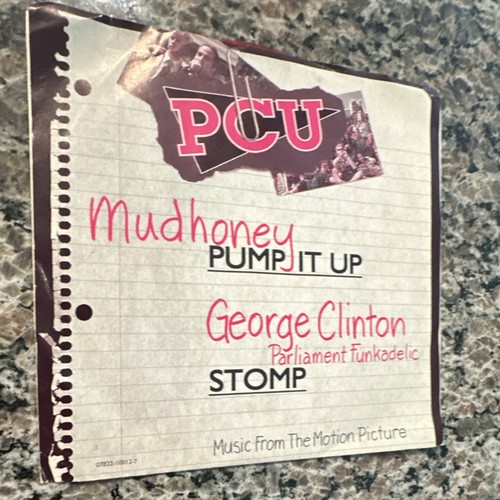 PCU
Mudhoney
PUMP IT UP
George Clinton
Parliament Funkadelic
STOMP
Music From The Motion Picture
07822-10012-7